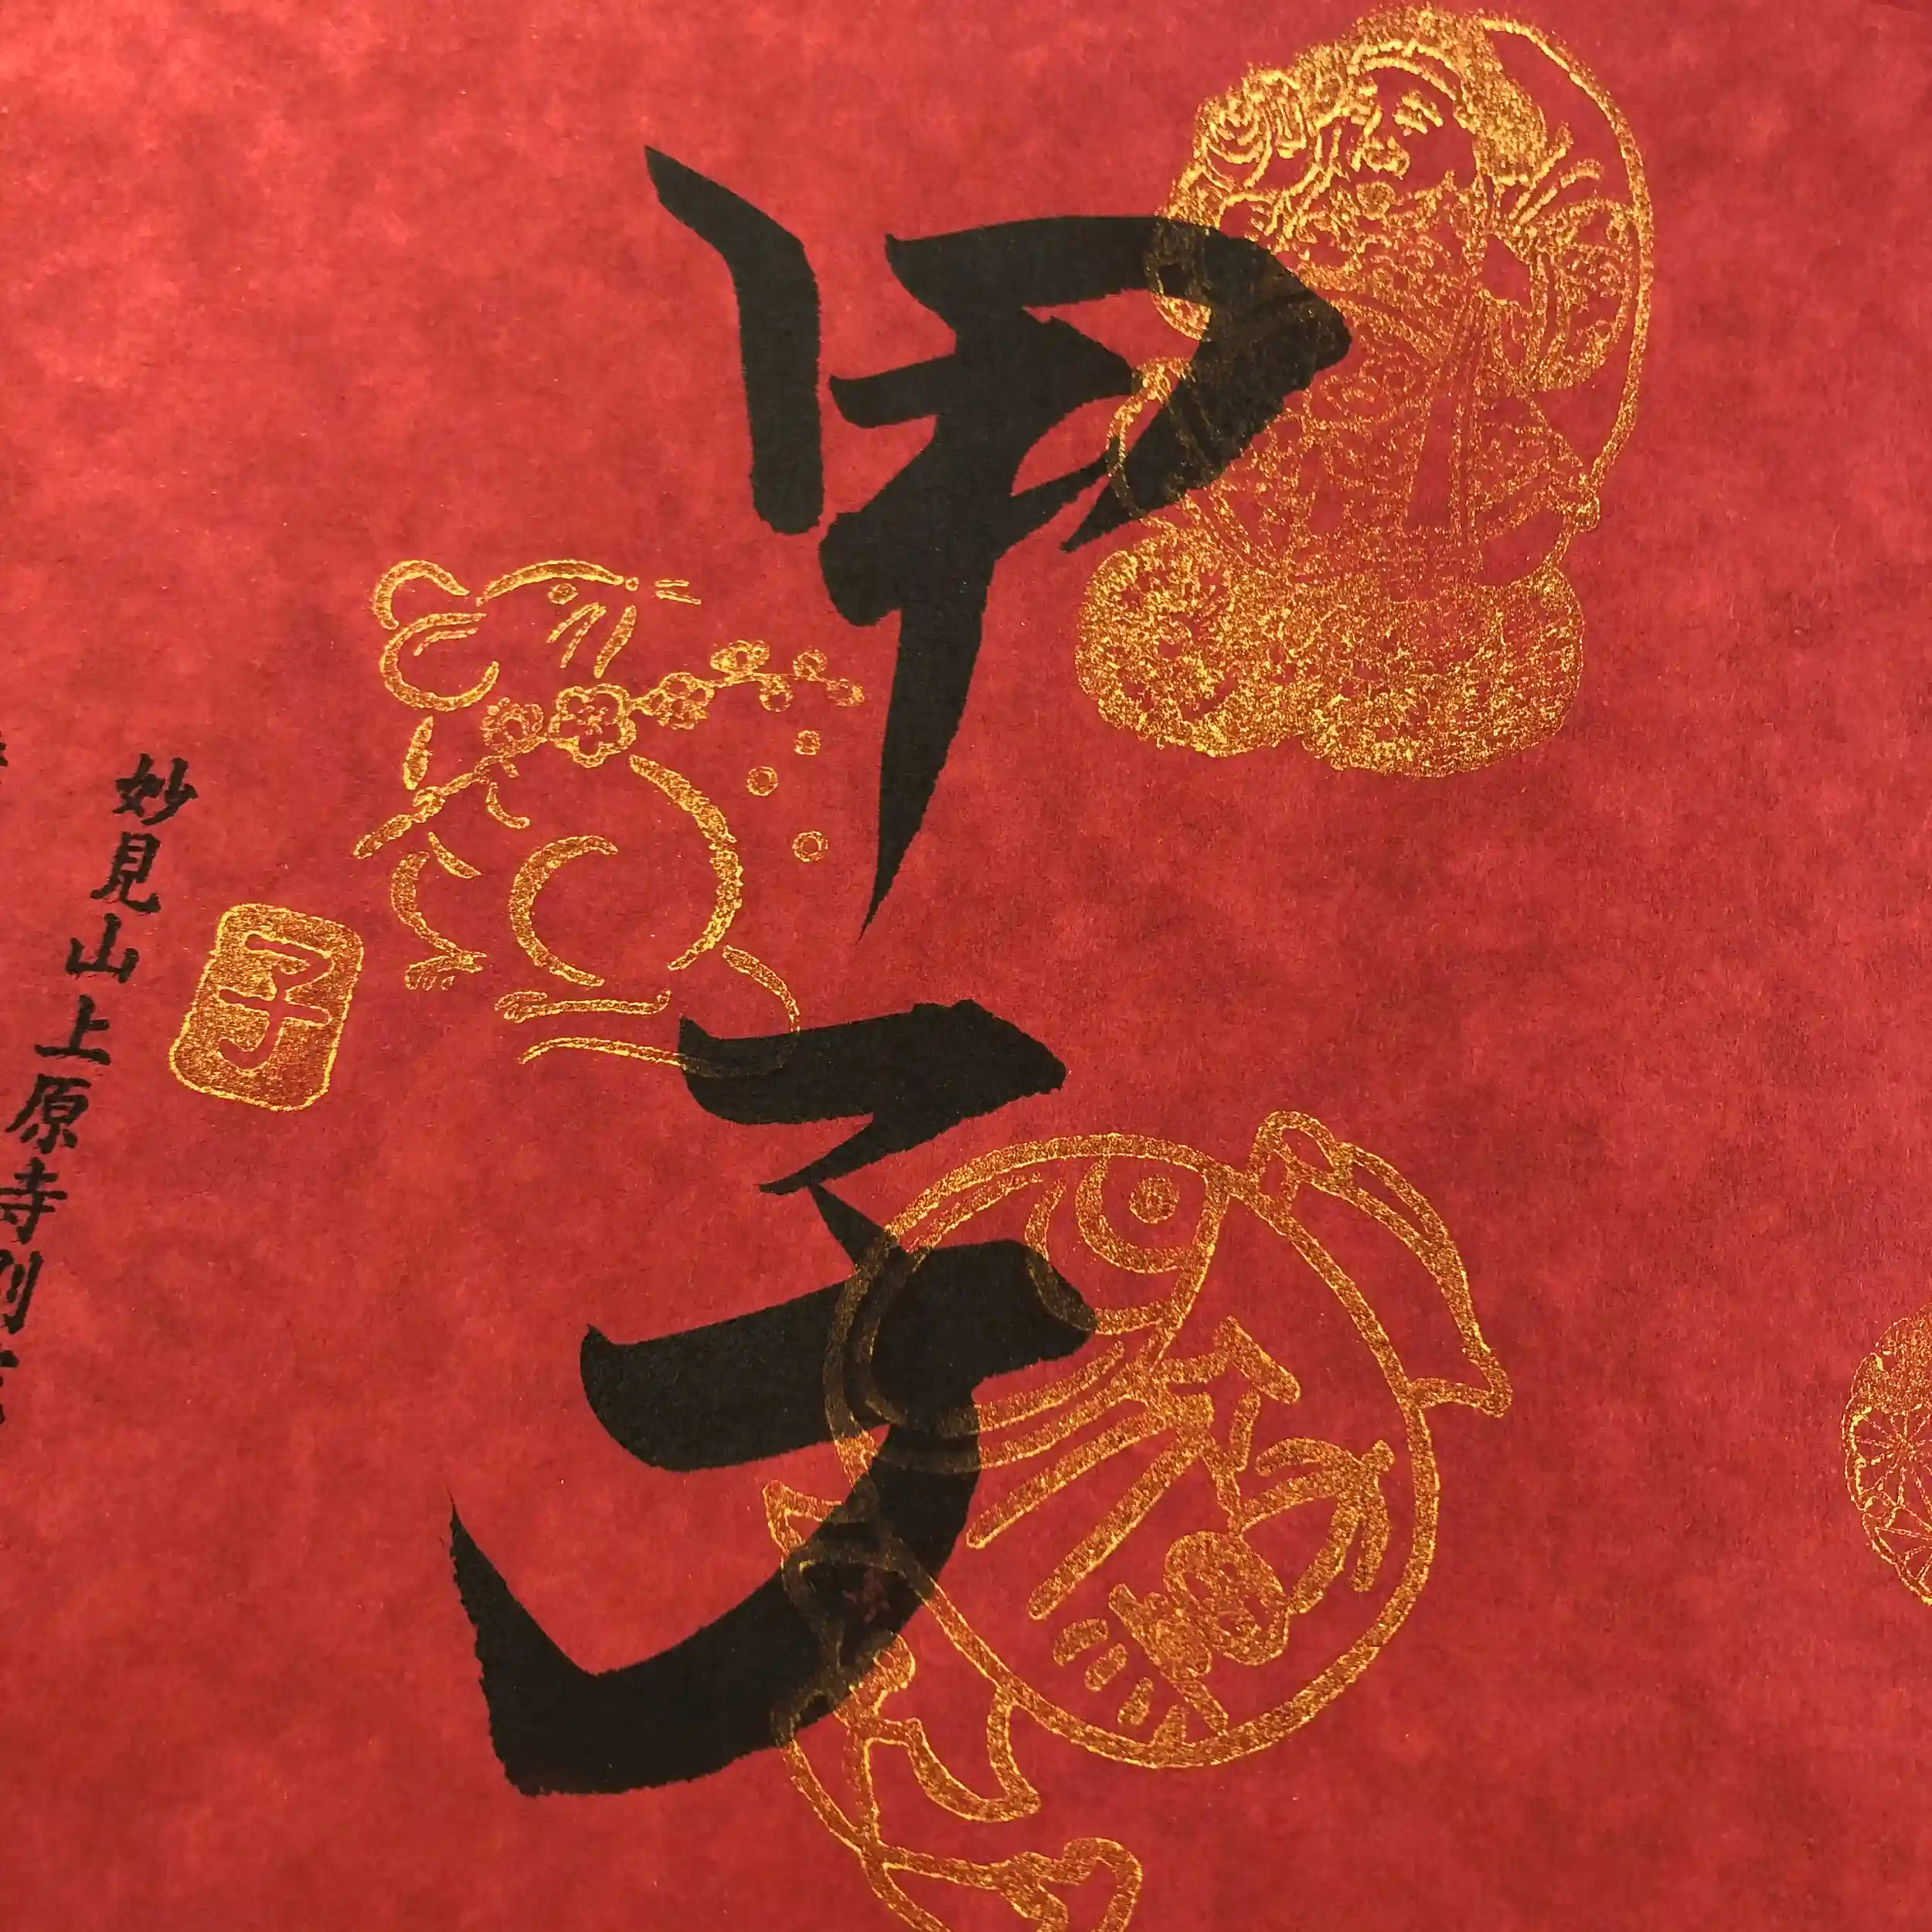 甲子
福
子
妙見山上原寺別